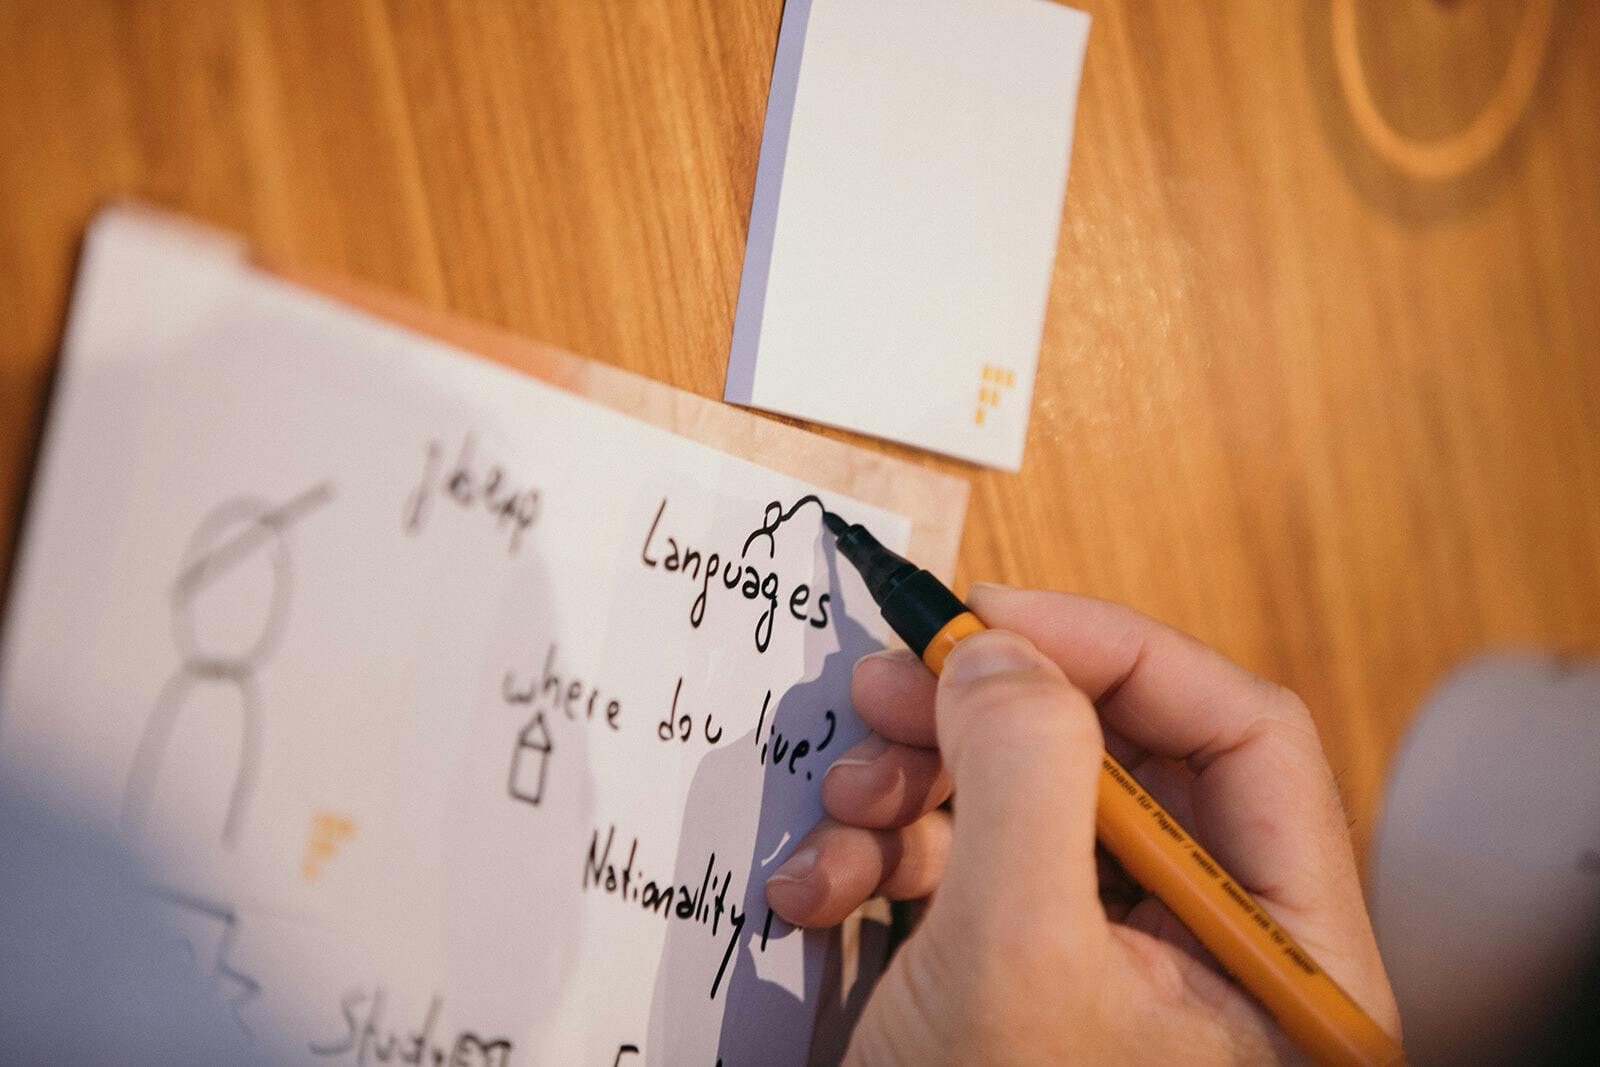 Languages
where do u live?
Nationality
Study
erbasis für Papier / water based ink for paper